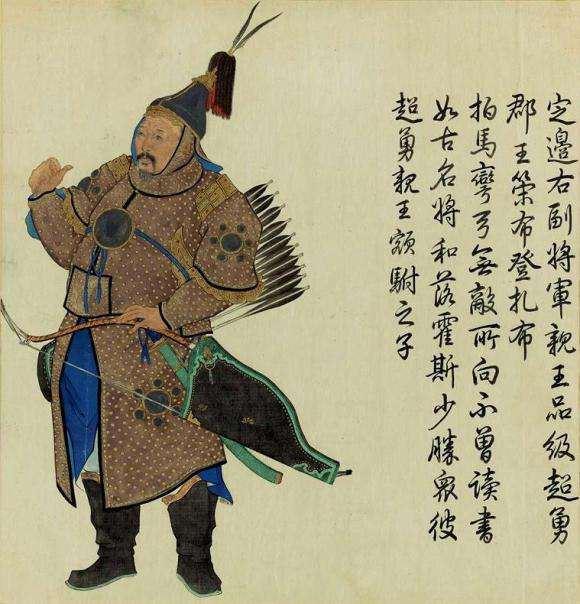 定邊右副將軍親王品級超勇
郡王策布登扎布
拍馬彎弓無敵所向不曾讀書
如古名將和落霍斯少勝眾彼
超勇親王額駙之子